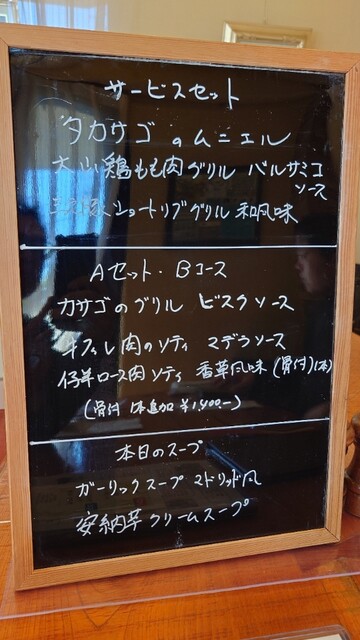 サービスセット
タカサゴのムニエル
大山鶏もも肉グリル バルサミコ
ソース
ショートリブグリル 和風味
Aセット・Bコース
カサゴのグリル ビスクソース
牛フィレ肉のソティ マデラソース
仔羊ロース肉ソティ 香草風味(骨付)(1本)
(骨付 1本追加 ¥1,400-)
本日のスープ
ガーリックスープ マドリッド風
安納芋クリームスープ